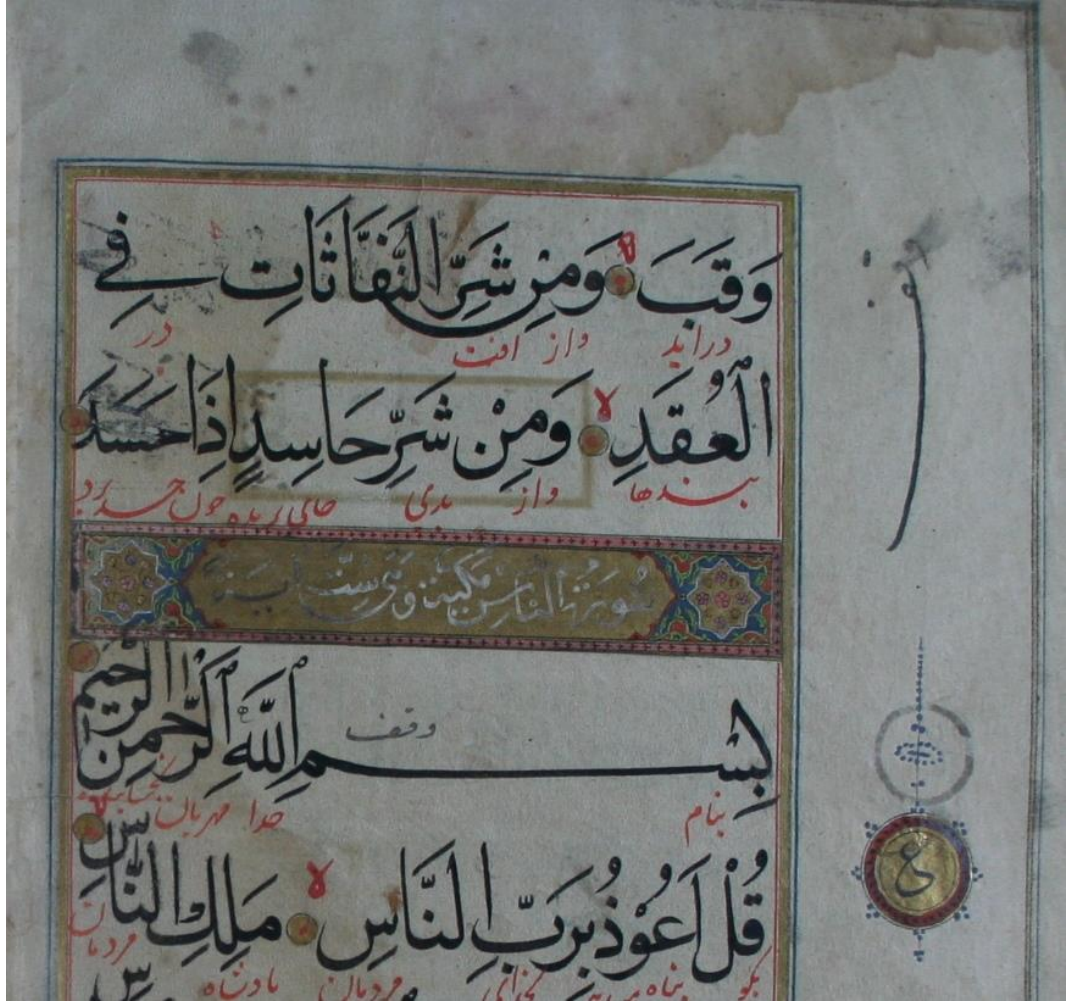 وَقَبَ لا وَمِنْ شَرِّ النَّفَّاثَاتِ فِي
درآید واز افت در
الْعُقَدِ لا وَمِنْ شَرِّ حَاسِدٍ اِذَا حَسَدَ
ببندها واز بدی چون
سورة الناس مكية وهي ست
بِسْمِ اللَّهِ الرَّحْمٰنِ الرَّحِيمِ
وقف
بنام خدا مهربان
قُلْ اَعُوْذُ بِرَبِّ النَّاسِ لا مَلِكِ النَّاسِ لا
بکو پناه مردمان پادشاه مردمان
وقف
ع